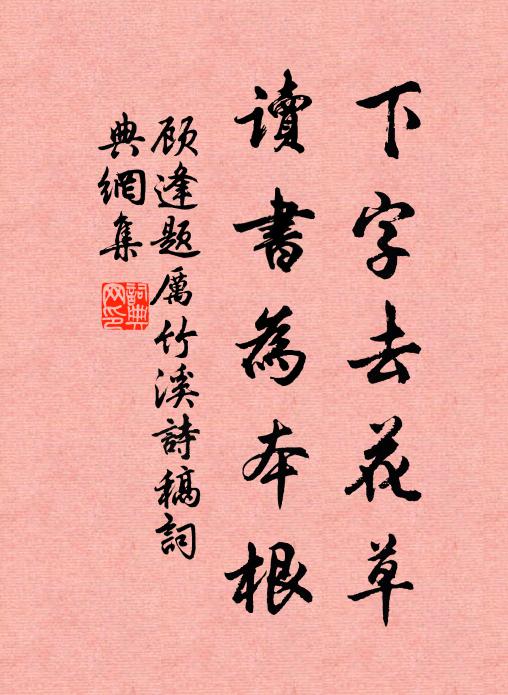 下字去花草
讀書為本根
顾逢题厲竹溪詩稿詞
典網集
詞典网印